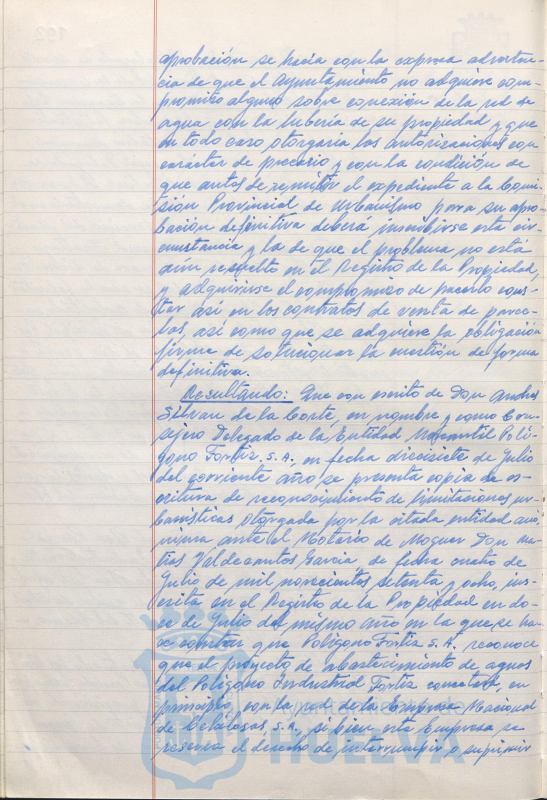 aprobación se hacía con la expresa adverten-
cia de que el Ayuntamiento no adquiere com-
promiso alguno sobre conexión de la red de
agua con la tubería de su propiedad y que
en todo caso otorgaría las autorizaciones con
carácter de precario y con la condición de
que antes de remitir el expediente a la Comi-
sión Provincial de Urbanismo para su apro-
bación definitiva deberá inscribirse esta cir-
cunstancia y la de que el problema no está
aún resuelto en el Registro de la Propiedad,
y adquirirse el compromiso de hacerlo cons-
tar así en los contratos de venta de parce-
las, así como que se adquiere la obligación
firme de solucionar la cuestión de forma
definitiva.
Resultando: Que con escrito de Don Andrés
Silván de la Corte, en nombre y como Con-
sejero Delegado de la Entidad Mercantil Polí-
gono Fortiz S.A., en fecha diecisiete de Julio
del corriente año, se presenta copia de es-
critura de reconocimiento de limitaciones ur-
banísticas otorgada por la citada entidad anó-
nima ante el Notario de Moguer Don Ma-
tías Valdecantos García de fecha cuatro de
Julio de mil novecientos setenta y ocho, ins-
crita en el Registro de la Propiedad en do-
ce de Julio del mismo año en la que se ha-
ce constar que Polígono Fortiz S.A. reconoce
que el proyecto de abastecimiento de aguas
del Polígono Industrial Fortiz conectará, en
principio, con la red de la Empresa Nacional
de Celulosas, S.A., si bien esta Empresa se
reserva el derecho de interrumpir o suprimir
HUELVA